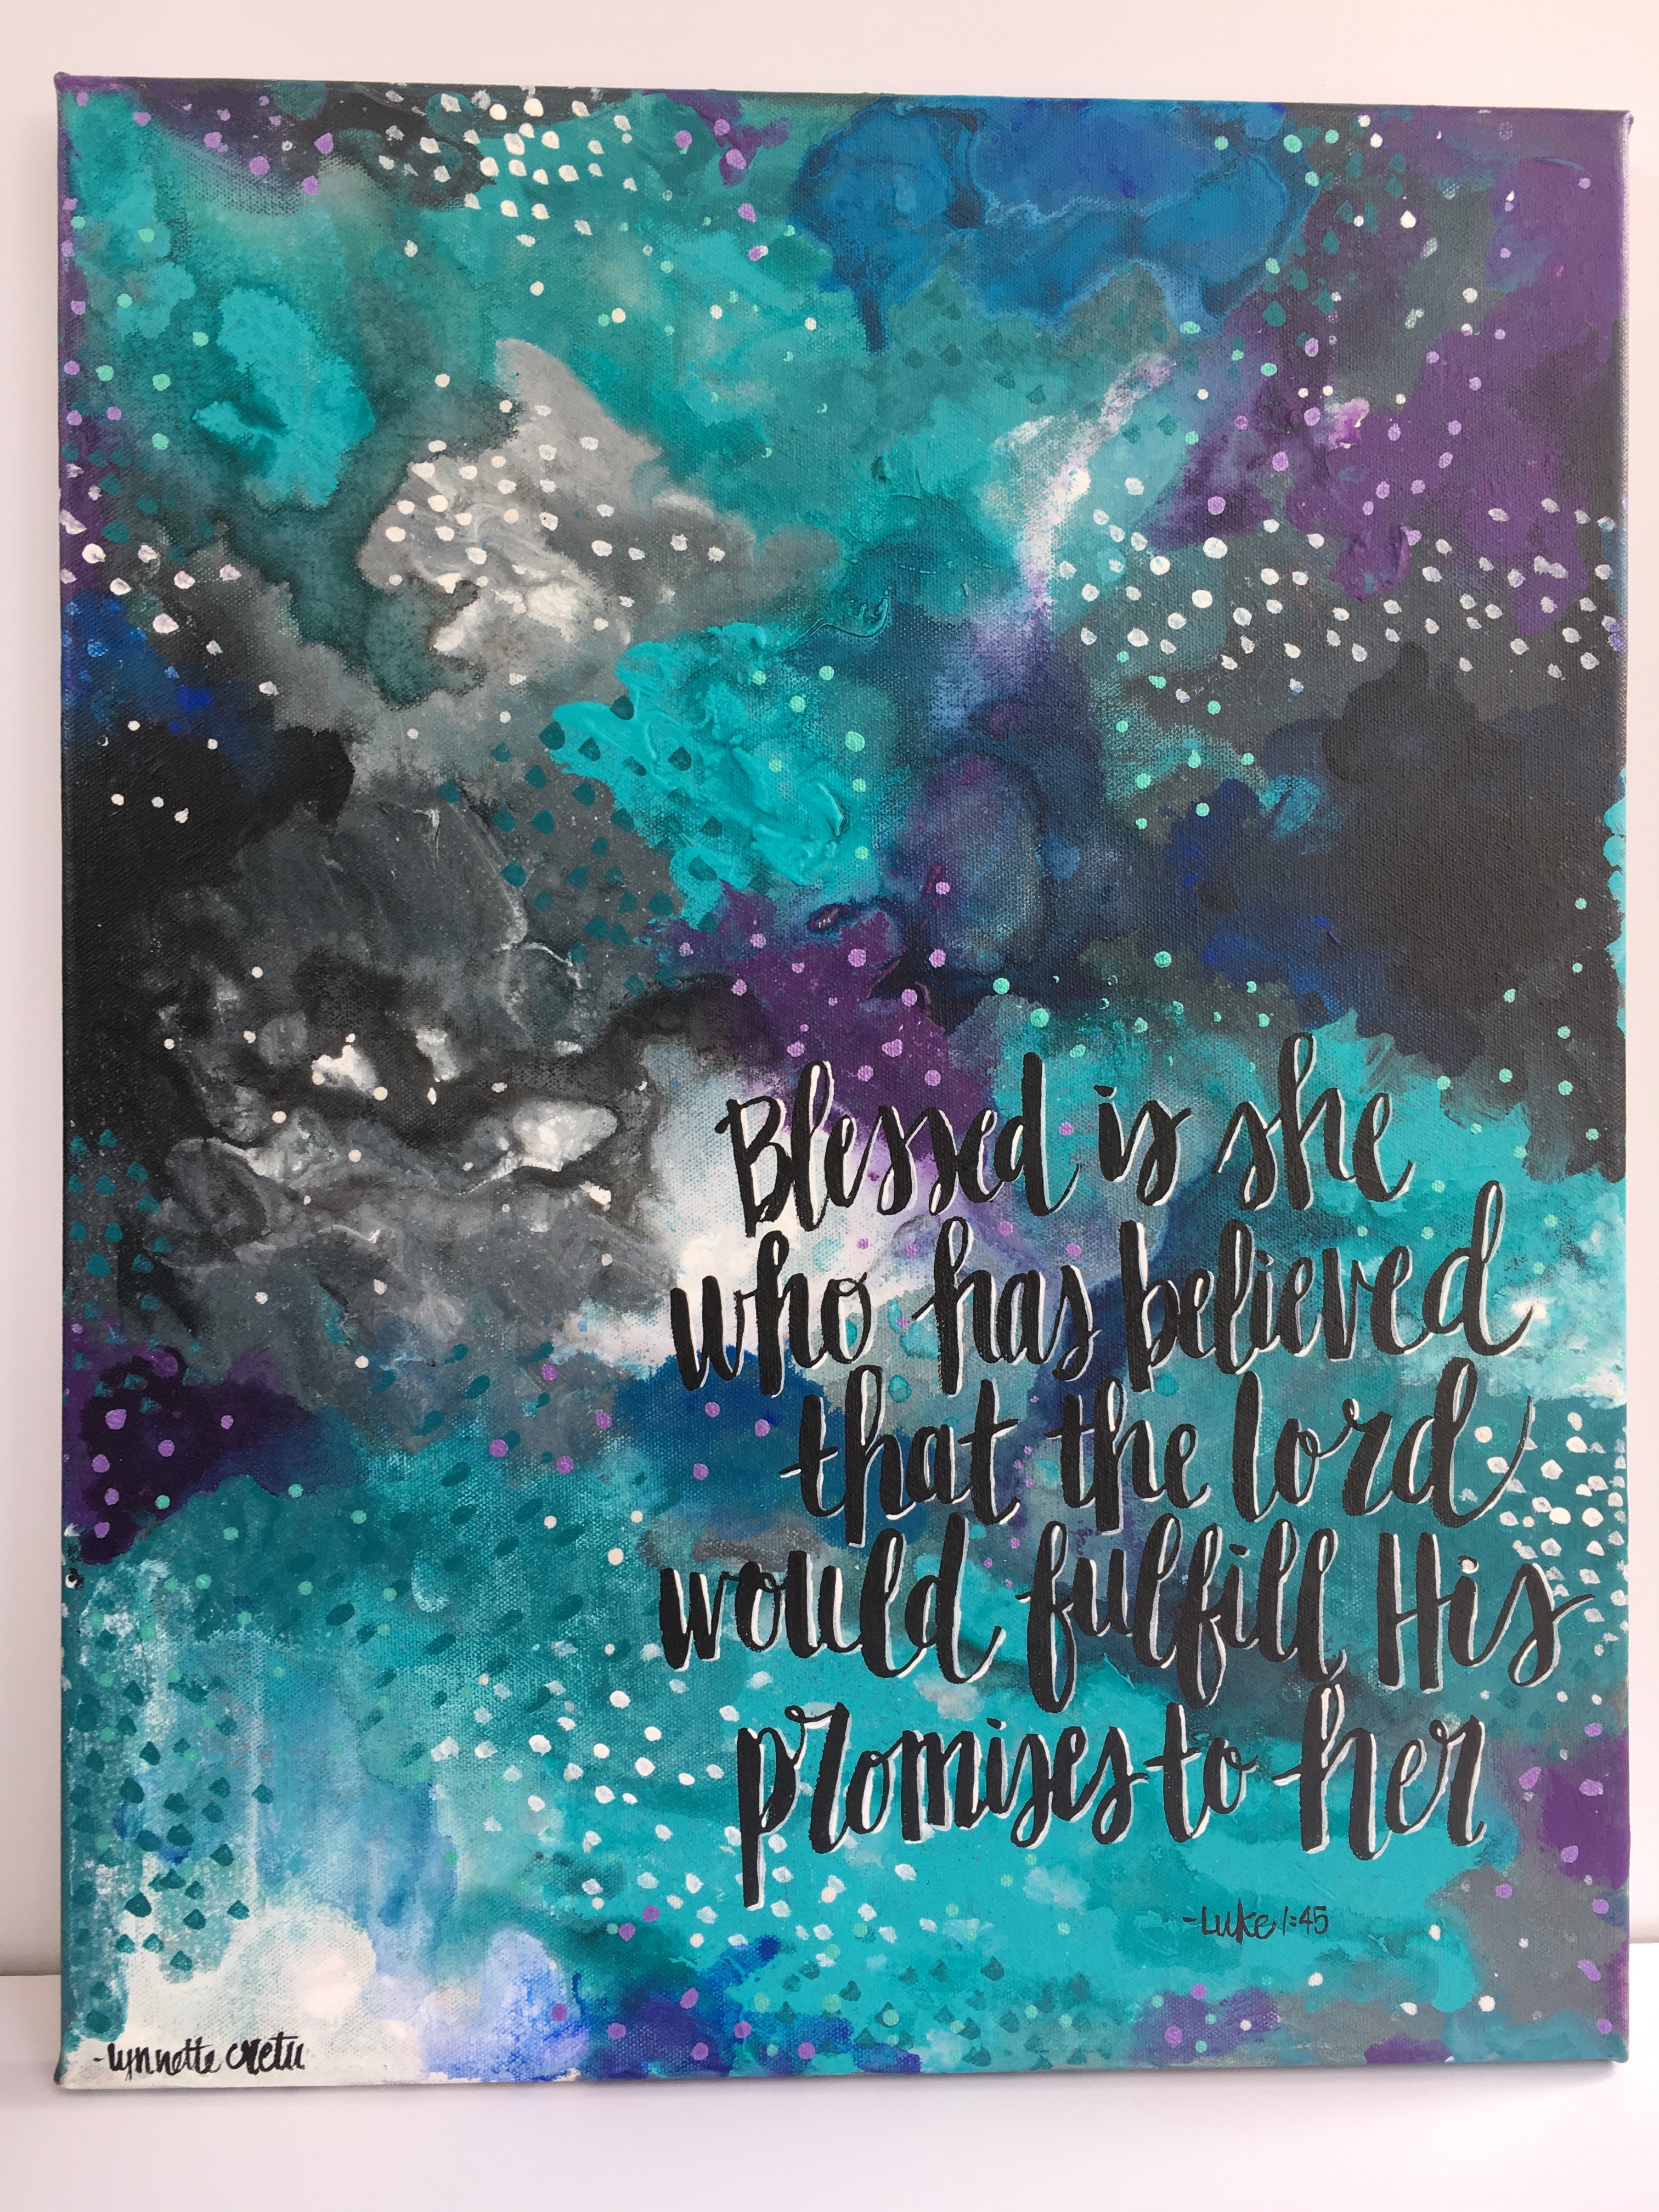 Blessed is she
who has believed
that the lord
would fulfill His
promises to her
-Luke 1:45
-lynnette cretu